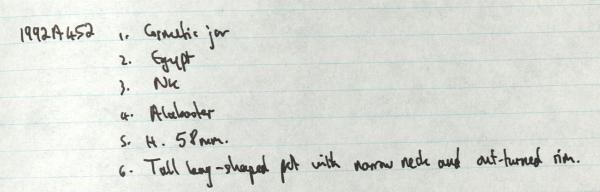 1992A452 1. Cosmetic jar
2. Egypt
3. NK
4. Alabaster
5. H. 58mm.
6. Tall bag-shaped pot with narrow neck and out-turned rim.